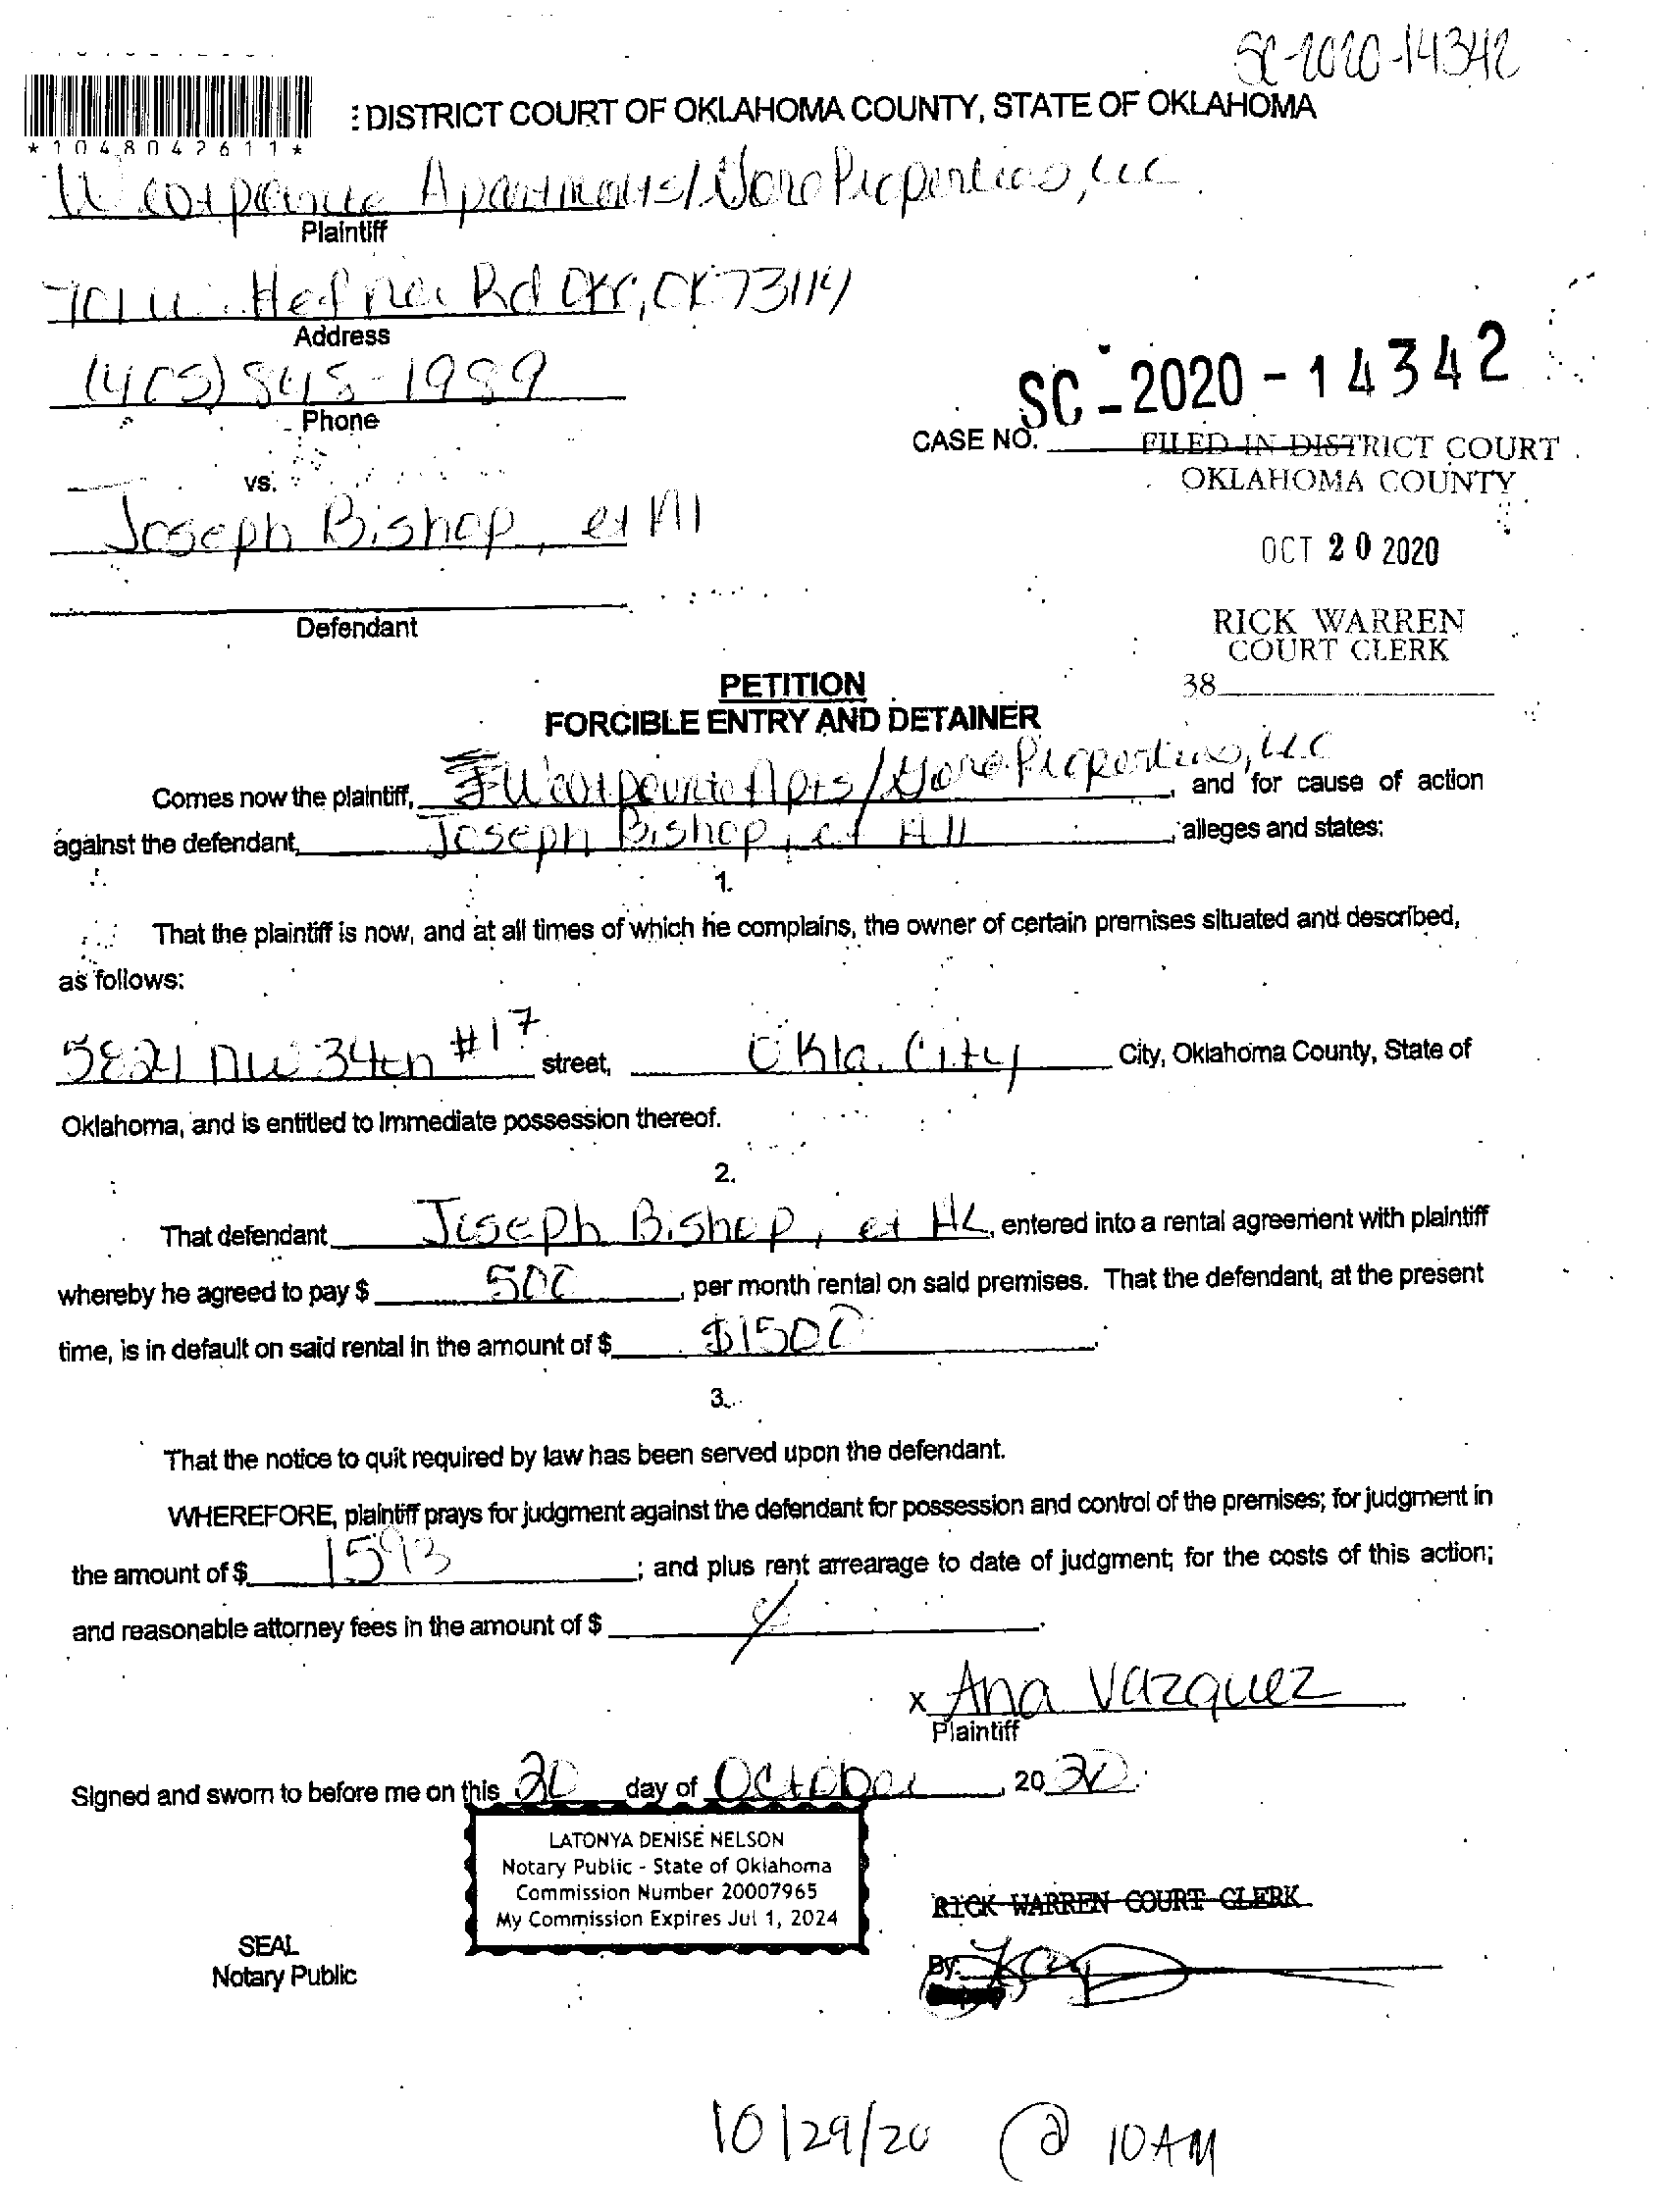 SC-2020-14342
DISTRICT COURT OF OKLAHOMA COUNTY, STATE OF OKLAHOMA
*1048042611*
Westpointe Apartments/ Properties, LLC
Plaintiff
701 W. Hefner Rd OKC, OK 73114
Address
(405) 848-1989
Phone
SC-2020-14342
CASE NO.
FILED IN DISTRICT COURT
OKLAHOMA COUNTY
vs.
Joseph Bishop, et Al
OCT 20 2020
Defendant
RICK WARREN
COURT CLERK
38
PETITION
FORCIBLE ENTRY AND DETAINER
Comes now the plaintiff, Westpointe Apts/ Properties, LLC, and for cause of action
against the defendant, Joseph Bishop, et All, alleges and states:
1.
That the plaintiff is now, and at all times of which he complains, the owner of certain premises situated and described,
as follows:
5821 NW 34th #17 street, Okla. City City, Oklahoma County, State of
Oklahoma, and is entitled to immediate possession thereof.
2.
That defendant Joseph Bishop, et AL, entered into a rental agreement with plaintiff
whereby he agreed to pay $ 500, per month rental on said premises. That the defendant, at the present
time, is in default on said rental in the amount of $ $1500.
3.
That the notice to quit required by law has been served upon the defendant.
WHEREFORE, plaintiff prays for judgment against the defendant for possession and control of the premises; for judgment in
the amount of $ 1593; and plus rent arrearage to date of judgment; for the costs of this action;
and reasonable attorney fees in the amount of $
x Ana Vazquez
Plaintiff
Signed and sworn to before me on this 20 day of October, 2020.
LATONYA DENISE NELSON
Notary Public - State of Oklahoma
Commission Number 20007965
My Commission Expires Jul 1, 2024
RICK WARREN COURT CLERK
SEAL
Notary Public
By:
10/29/20 @ 10AM